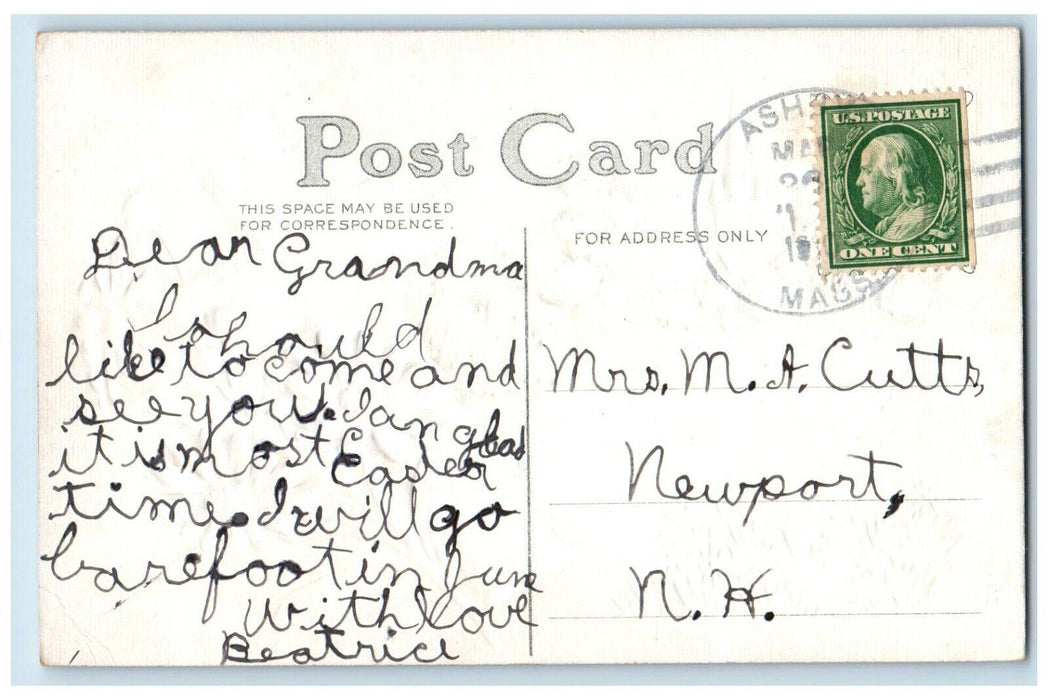 Post Card
THIS SPACE MAY BE USED
FOR CORRESPONDENCE.
FOR ADDRESS ONLY
U.S. POSTAGE
ONE CENT
MASS
Dear Grandma
I should
like to come and
see you. I an glad
it is most Easter
time. I will go
barefoot in June
With love
Beatrice
Mrs. M. A. Cutts,
Newport,
N. H.